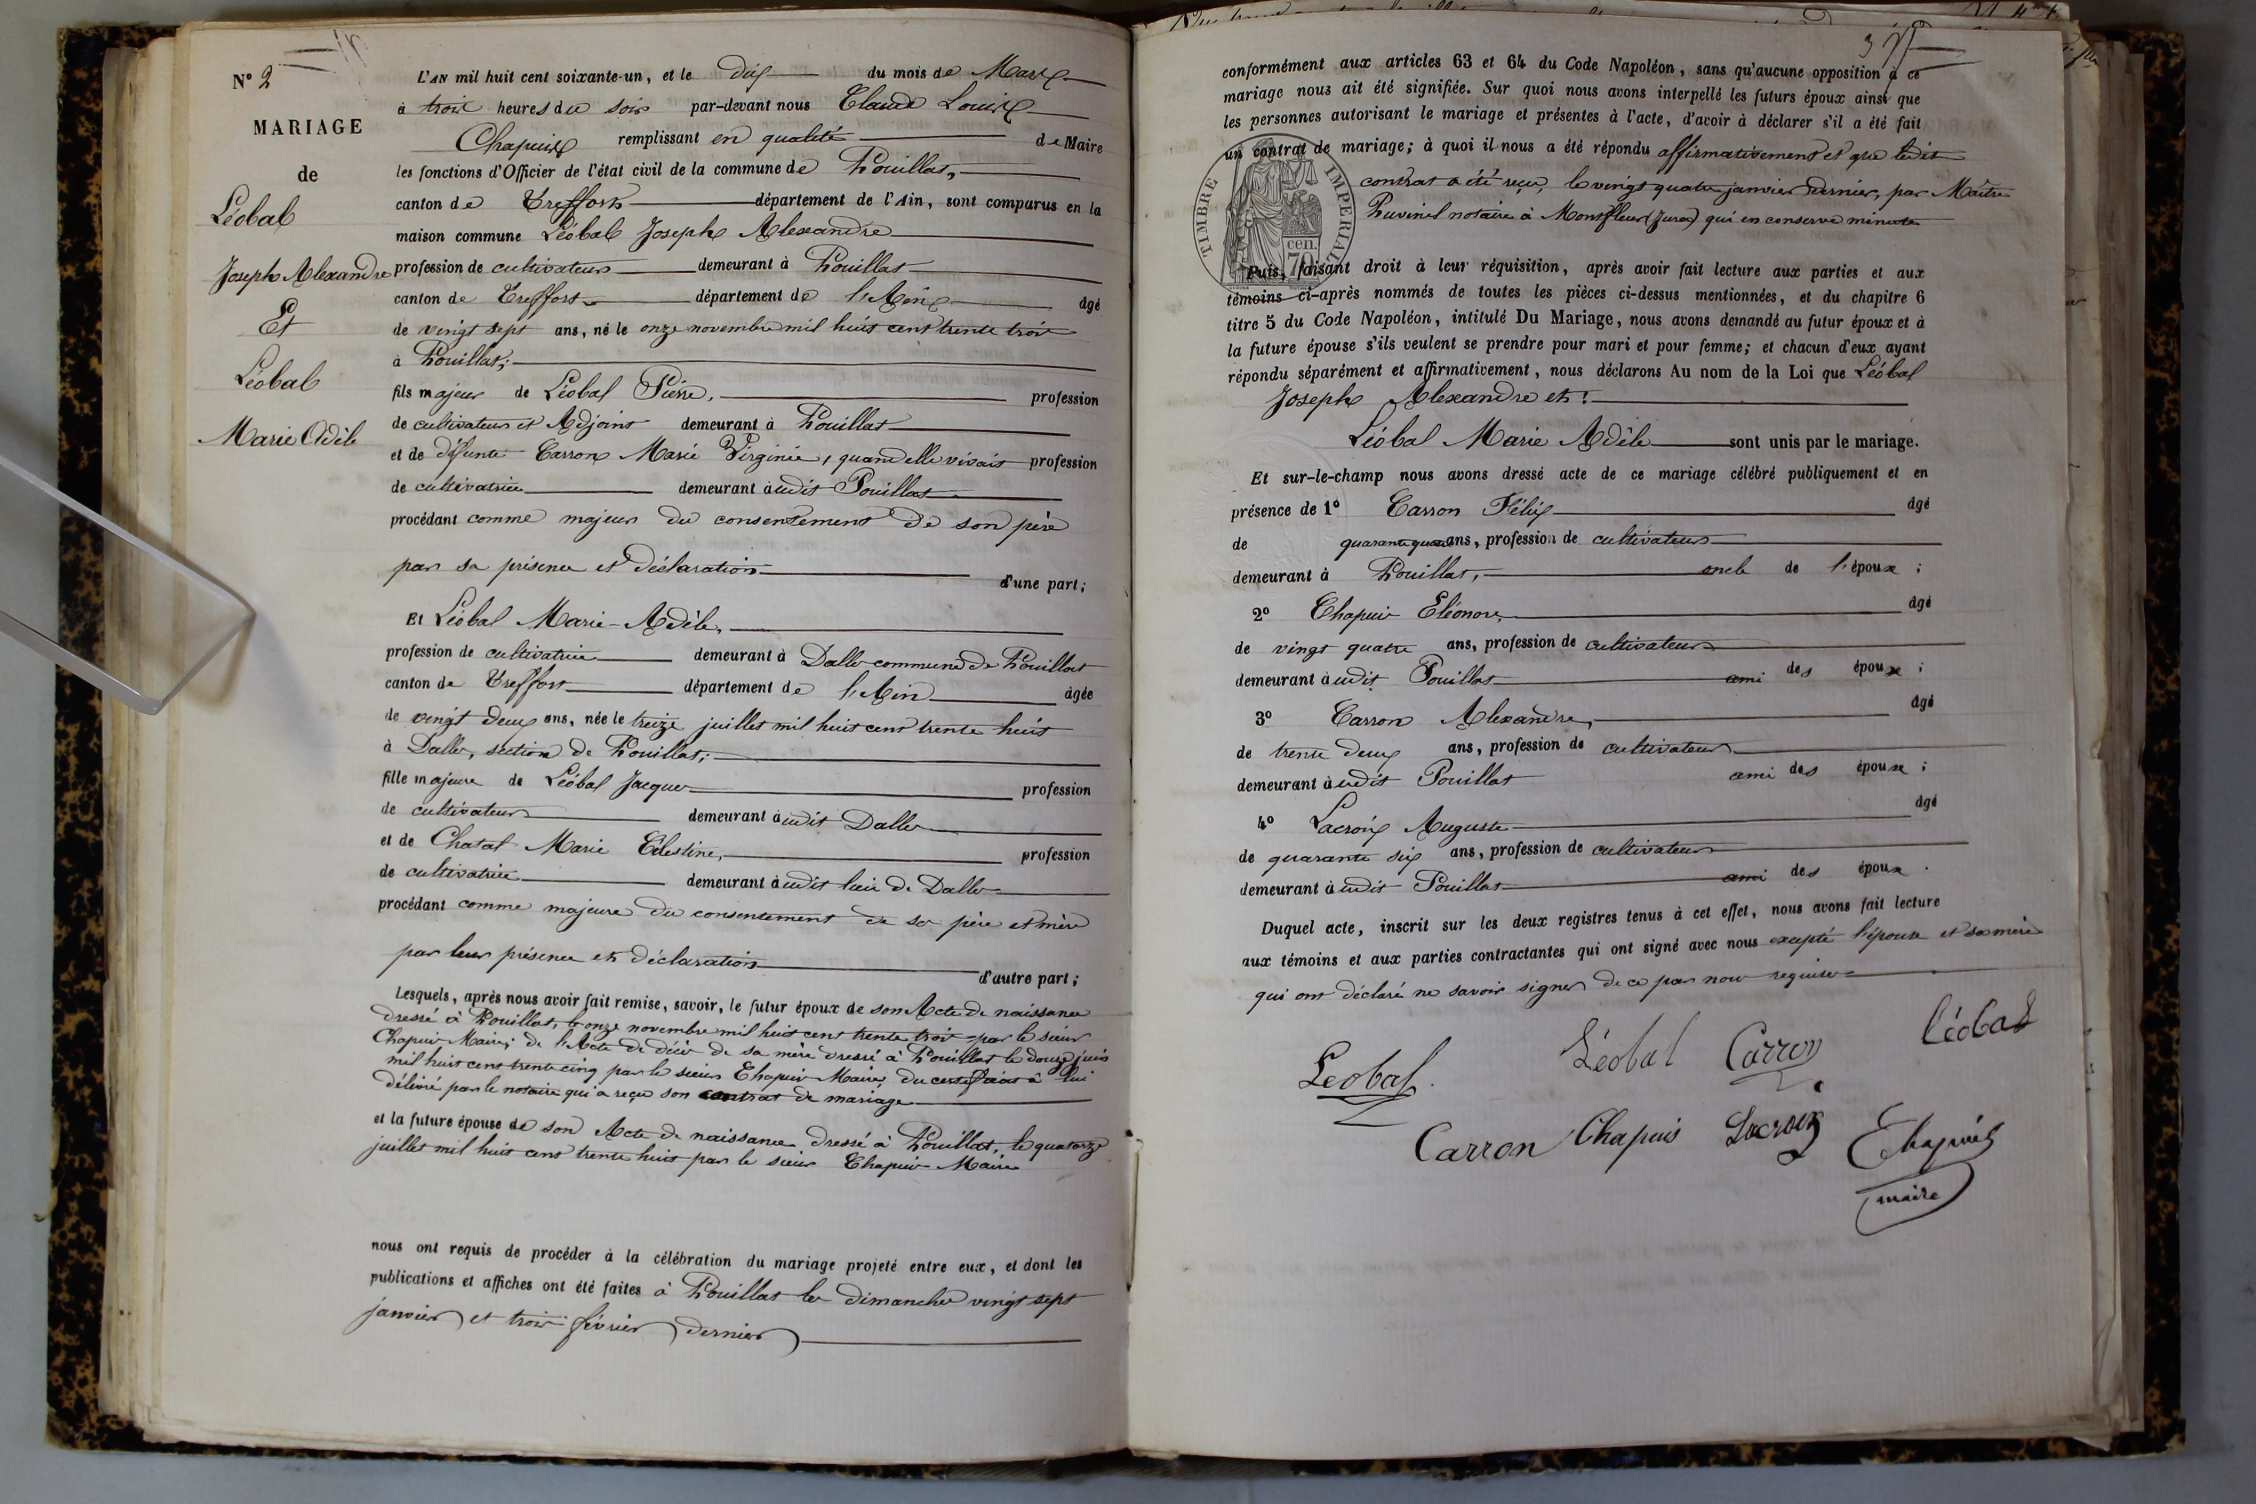 N° 2
MARIAGE
de
Léobal
Joseph Alexandre
Et
Léobal
Marie Adèle
L'AN mil huit cent soixante-un, et le dix du mois de Mars
à trois heures du soir par-devant nous Claude Louis
Chapuis remplissant en qualité de Maire
les fonctions d'Officier de l'état civil de la commune de Pouillat,
canton de Treffort département de l'Ain, sont comparus en la
maison commune Léobal Joseph Alexandre
profession de cultivateur demeurant à Pouillat
canton de Treffort département de l'Ain âgé
de vingt sept ans, né le onze novembre mil huit cent trente trois
à Pouillat;
fils majeur de Léobal Pierre, profession
de cultivateur et Adjoint demeurant à Pouillat
et de défunte Carron Marie Virginie, quand elle vivait profession
de cultivatrice demeurant à udit Pouillat
procédant comme majeur du consentement de son père
par sa présence et déclaration d'une part;
Et Léobal Marie-Adèle,
profession de cultivatrice demeurant à Dalle commune de Pouillat
canton de Treffort département de l'Ain âgée
de vingt deux ans, née le treize juillet mil huit cent trente huit
à Dalle, section de Pouillat;
fille majeure de Léobal Jacques profession
de cultivateur demeurant à udit Dalle
et de Chatal Marie Célestine, profession
de cultivatrice demeurant à udit lieu de Dalle
procédant comme majeure du consentement de ses père et mère
par leur présence et déclaration d'autre part;
Lesquels, après nous avoir fait remise, savoir, le futur époux de son Acte de naissance
dressé à Pouillat, le onze novembre mil huit cent trente trois par le sieur
Chapuis Maire; de l'Acte de décès de sa mère dressé à Pouillat le douze juin
mil huit cent trente cinq par le sieur Chapuis Maire, du certificat à lui
délivré par le notaire qui a reçu son contrat de mariage
et la future épouse de son Acte de naissance dressé à Pouillat, le quatorze
juillet mil huit cent trente huit par le sieur Chapuis Maire
nous ont requis de procéder à la célébration du mariage projeté entre eux, et dont les
publications et affiches ont été faites à Pouillat les dimanches vingt sept
janvier et trois février dernier
conformément aux articles 63 et 64 du Code Napoléon, sans qu'aucune opposition à ce
mariage nous ait été signifiée. Sur quoi nous avons interpellé les futurs époux ainsi que
les personnes autorisant le mariage et présentes à l'acte, d'avoir à déclarer s'il a été fait
un contrat de mariage; à quoi il nous a été répondu affirmativement et que ledit
contrat a été reçu, le vingt quatre janvier dernier, par Maître
Puvinel notaire à Montfleur (Jura) qui en conserve minute
TIMBRE IMPERIAL
70 cen.
Puis, faisant droit à leur réquisition, après avoir fait lecture aux parties et aux
témoins ci-après nommés de toutes les pièces ci-dessus mentionnées, et du chapitre 6
titre 5 du Code Napoléon, intitulé Du Mariage, nous avons demandé au futur époux et à
la future épouse s'ils veulent se prendre pour mari et pour femme; et chacun d'eux ayant
répondu séparément et affirmativement, nous déclarons Au nom de la Loi que Léobal
Joseph Alexandre et:
Léobal Marie Adèle sont unis par le mariage.
Et sur-le-champ nous avons dressé acte de ce mariage célébré publiquement et en
présence de 1° Carron Félix âgé
de quarante quatre ans, profession de cultivateur
demeurant à Pouillat, oncle de l'époux;
2° Chapuis Eléonore, âgé
de vingt quatre ans, profession de cultivateur
demeurant à udit Pouillat ami des époux;
3° Carron Alexandre, âgé
de trente deux ans, profession de cultivateur
demeurant à udit Pouillat ami des époux;
4° Lacroix Auguste âgé
de quarante six ans, profession de cultivateur
demeurant à udit Pouillat ami des époux.
Duquel acte, inscrit sur les deux registres tenus à cet effet, nous avons fait lecture
aux témoins et aux parties contractantes qui ont signé avec nous excepté l'épouse et sa mère
qui ont déclaré ne savoir signer de ce par nous requises
Leobal Léobal Carron Léobal
Carron Chapuis Lacroix Chapuis
maire